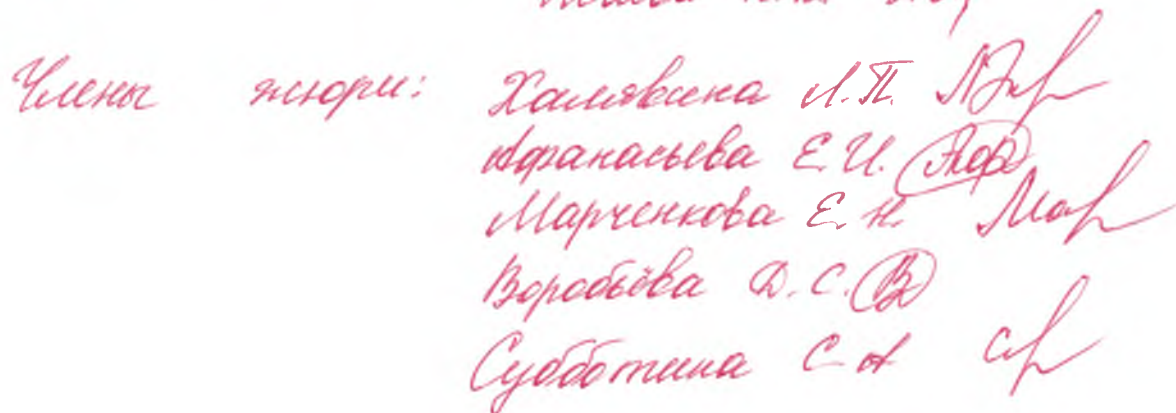 Члены жюри: Халявкина Л.П.
Афанасьева Е.И. Аф
Марченкова Е.Н. Мар
Воробьёва Д.С. В
Субботина С.А